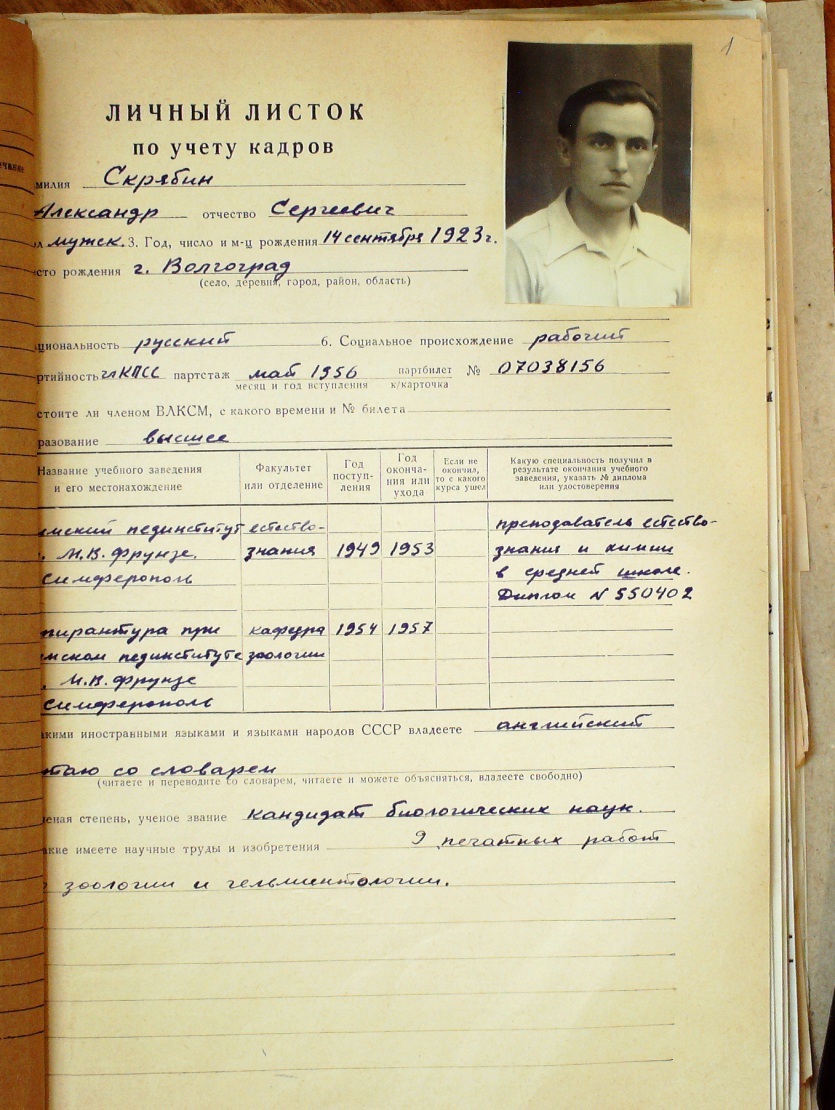 1
ЛИЧНЫЙ ЛИСТОК
по учету кадров
милия Скрябин
Александр отчество Сергеевич
л мужск. 3. Год, число и м-ц рождения 14 сентября 1923 г.
сто рождения г. Волгоград
(село, деревня, город, район, область)
циональность русский 6. Социальное происхождение рабочий
ртийность чл КПСС партстаж май 1956 партбилет № 07038156
месяц и год вступления к/карточка
стоите ли членом ВЛКСМ, с какого времени и № билета
разование высшее
Название учебного заведения и его местонахождение
Факультет или отделение
Год поступ-
ления
Год
оконча-
ния или
ухода
Если не
окончил,
то с какого
курса ушел
Какую специальность получил в
результате окончания учебного
заведения, указать № диплома
или удостоверения
мский пединститут естество- преподаватель естество-
. М.В. Фрунзе. знания 1949 1953 знания и химии
Симферополь в средней школе.
Диплом N 550402
пирантура при кафедра 1954 1957
мском пединституте зоологии
. М.В. Фрунзе
Симферополь
акими иностранными языками и языками народов СССР владеете английский
таю со словарем
(читаете и переводите со словарем, читаете и можете объясняться, владеете свободно)
ченая степень, ученое звание кандидат биологических наук.
акие имеете научные труды и изобретения 9 печатных работ
зоологии и гельминтологии.